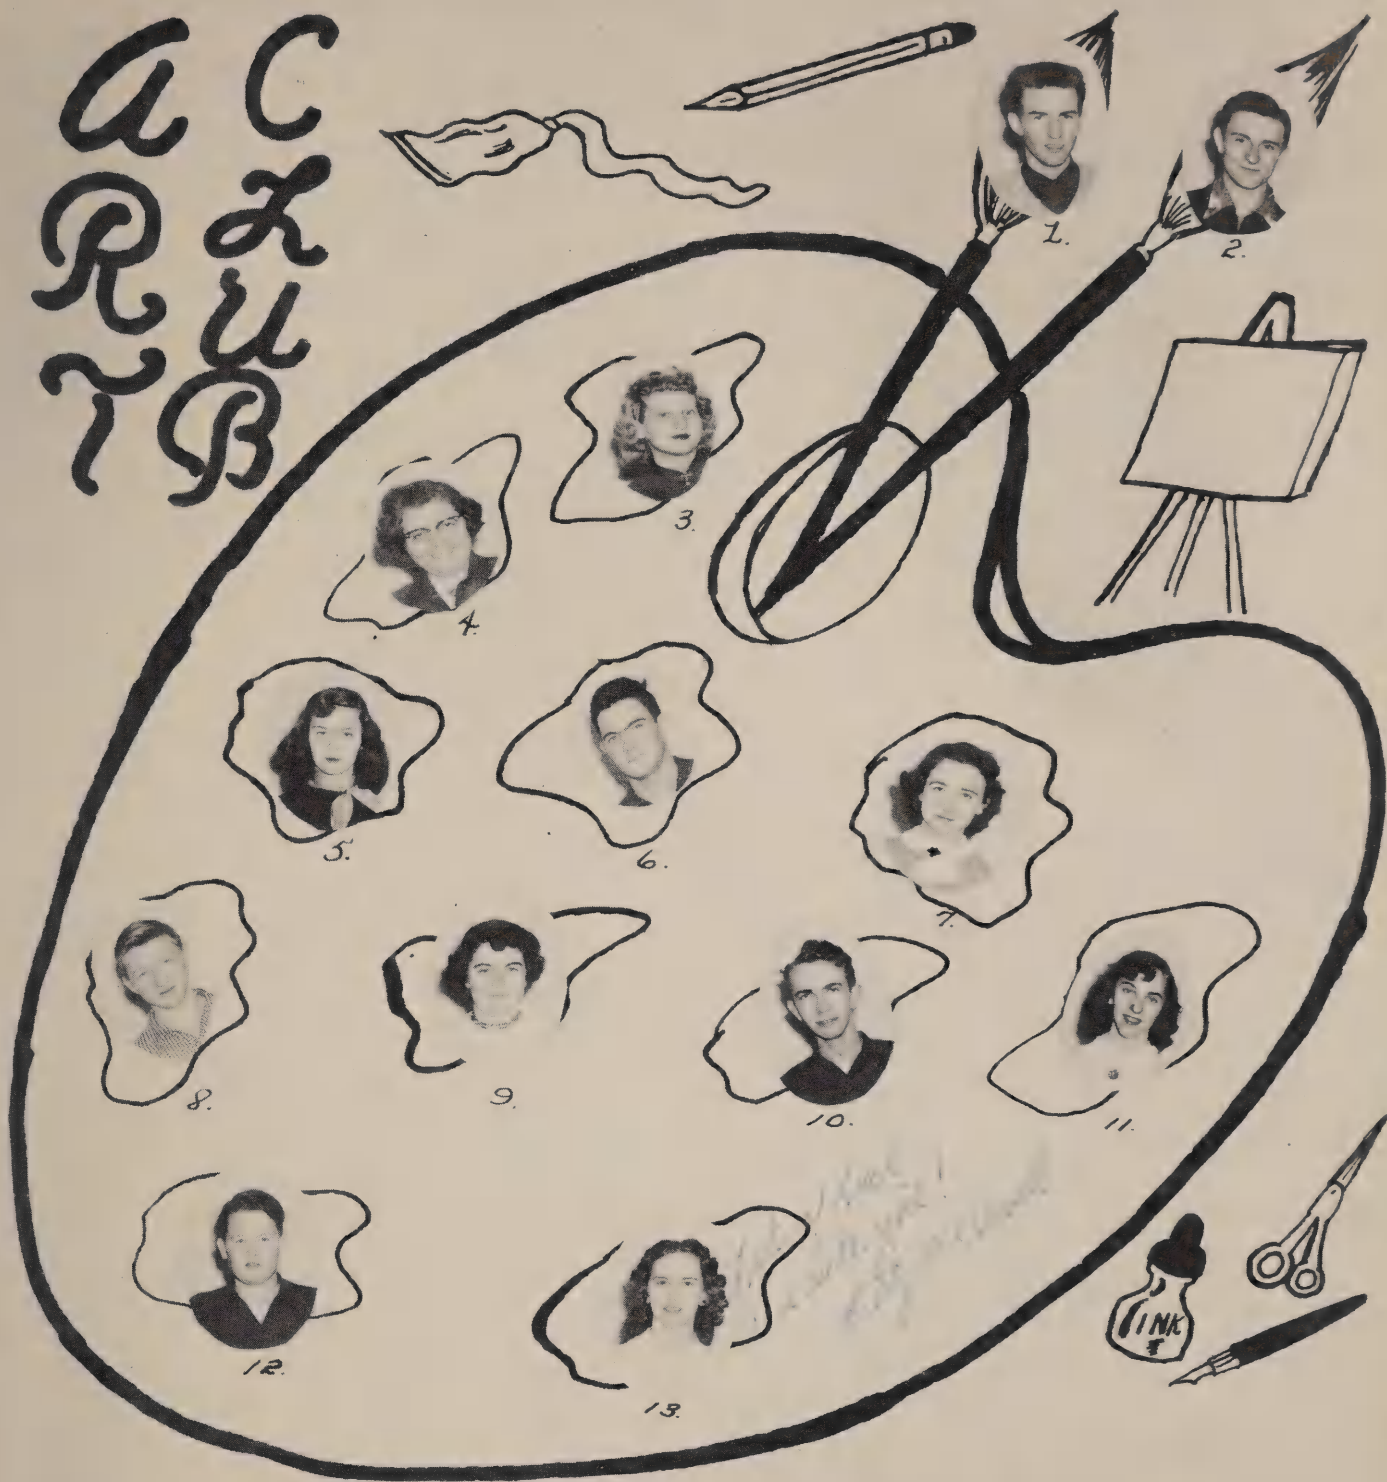 ART CLUB
1.
2.
3.
4.
5.
6.
7.
8.
9.
10.
11.
12.
13.
INK